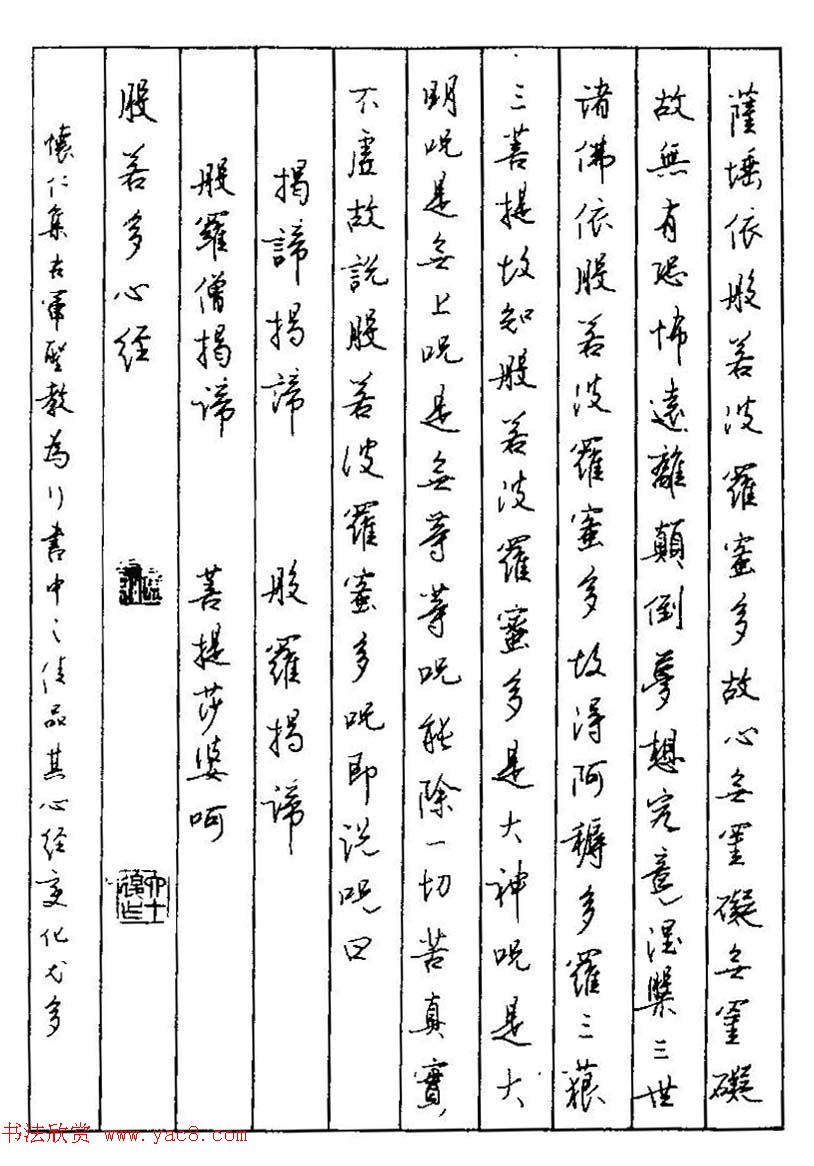 薩埵依般若波羅蜜多故心無罣礙無罣礙
故無有恐怖遠離顛倒夢想究竟涅槃三世
諸佛依般若波羅蜜多故得阿耨多羅三藐
三菩提故知般若波羅蜜多是大神呪是大
明呪是無上呪是無等等呪能除一切苦真實
不虛故說般若波羅蜜多呪即說呪曰
揭諦揭諦 般羅揭諦
般羅僧揭諦 菩提莎婆呵
般若多心經
懷仁集右軍聖教為行書中之佳品其心經變化尤多
书法欣赏 www.yac8.com